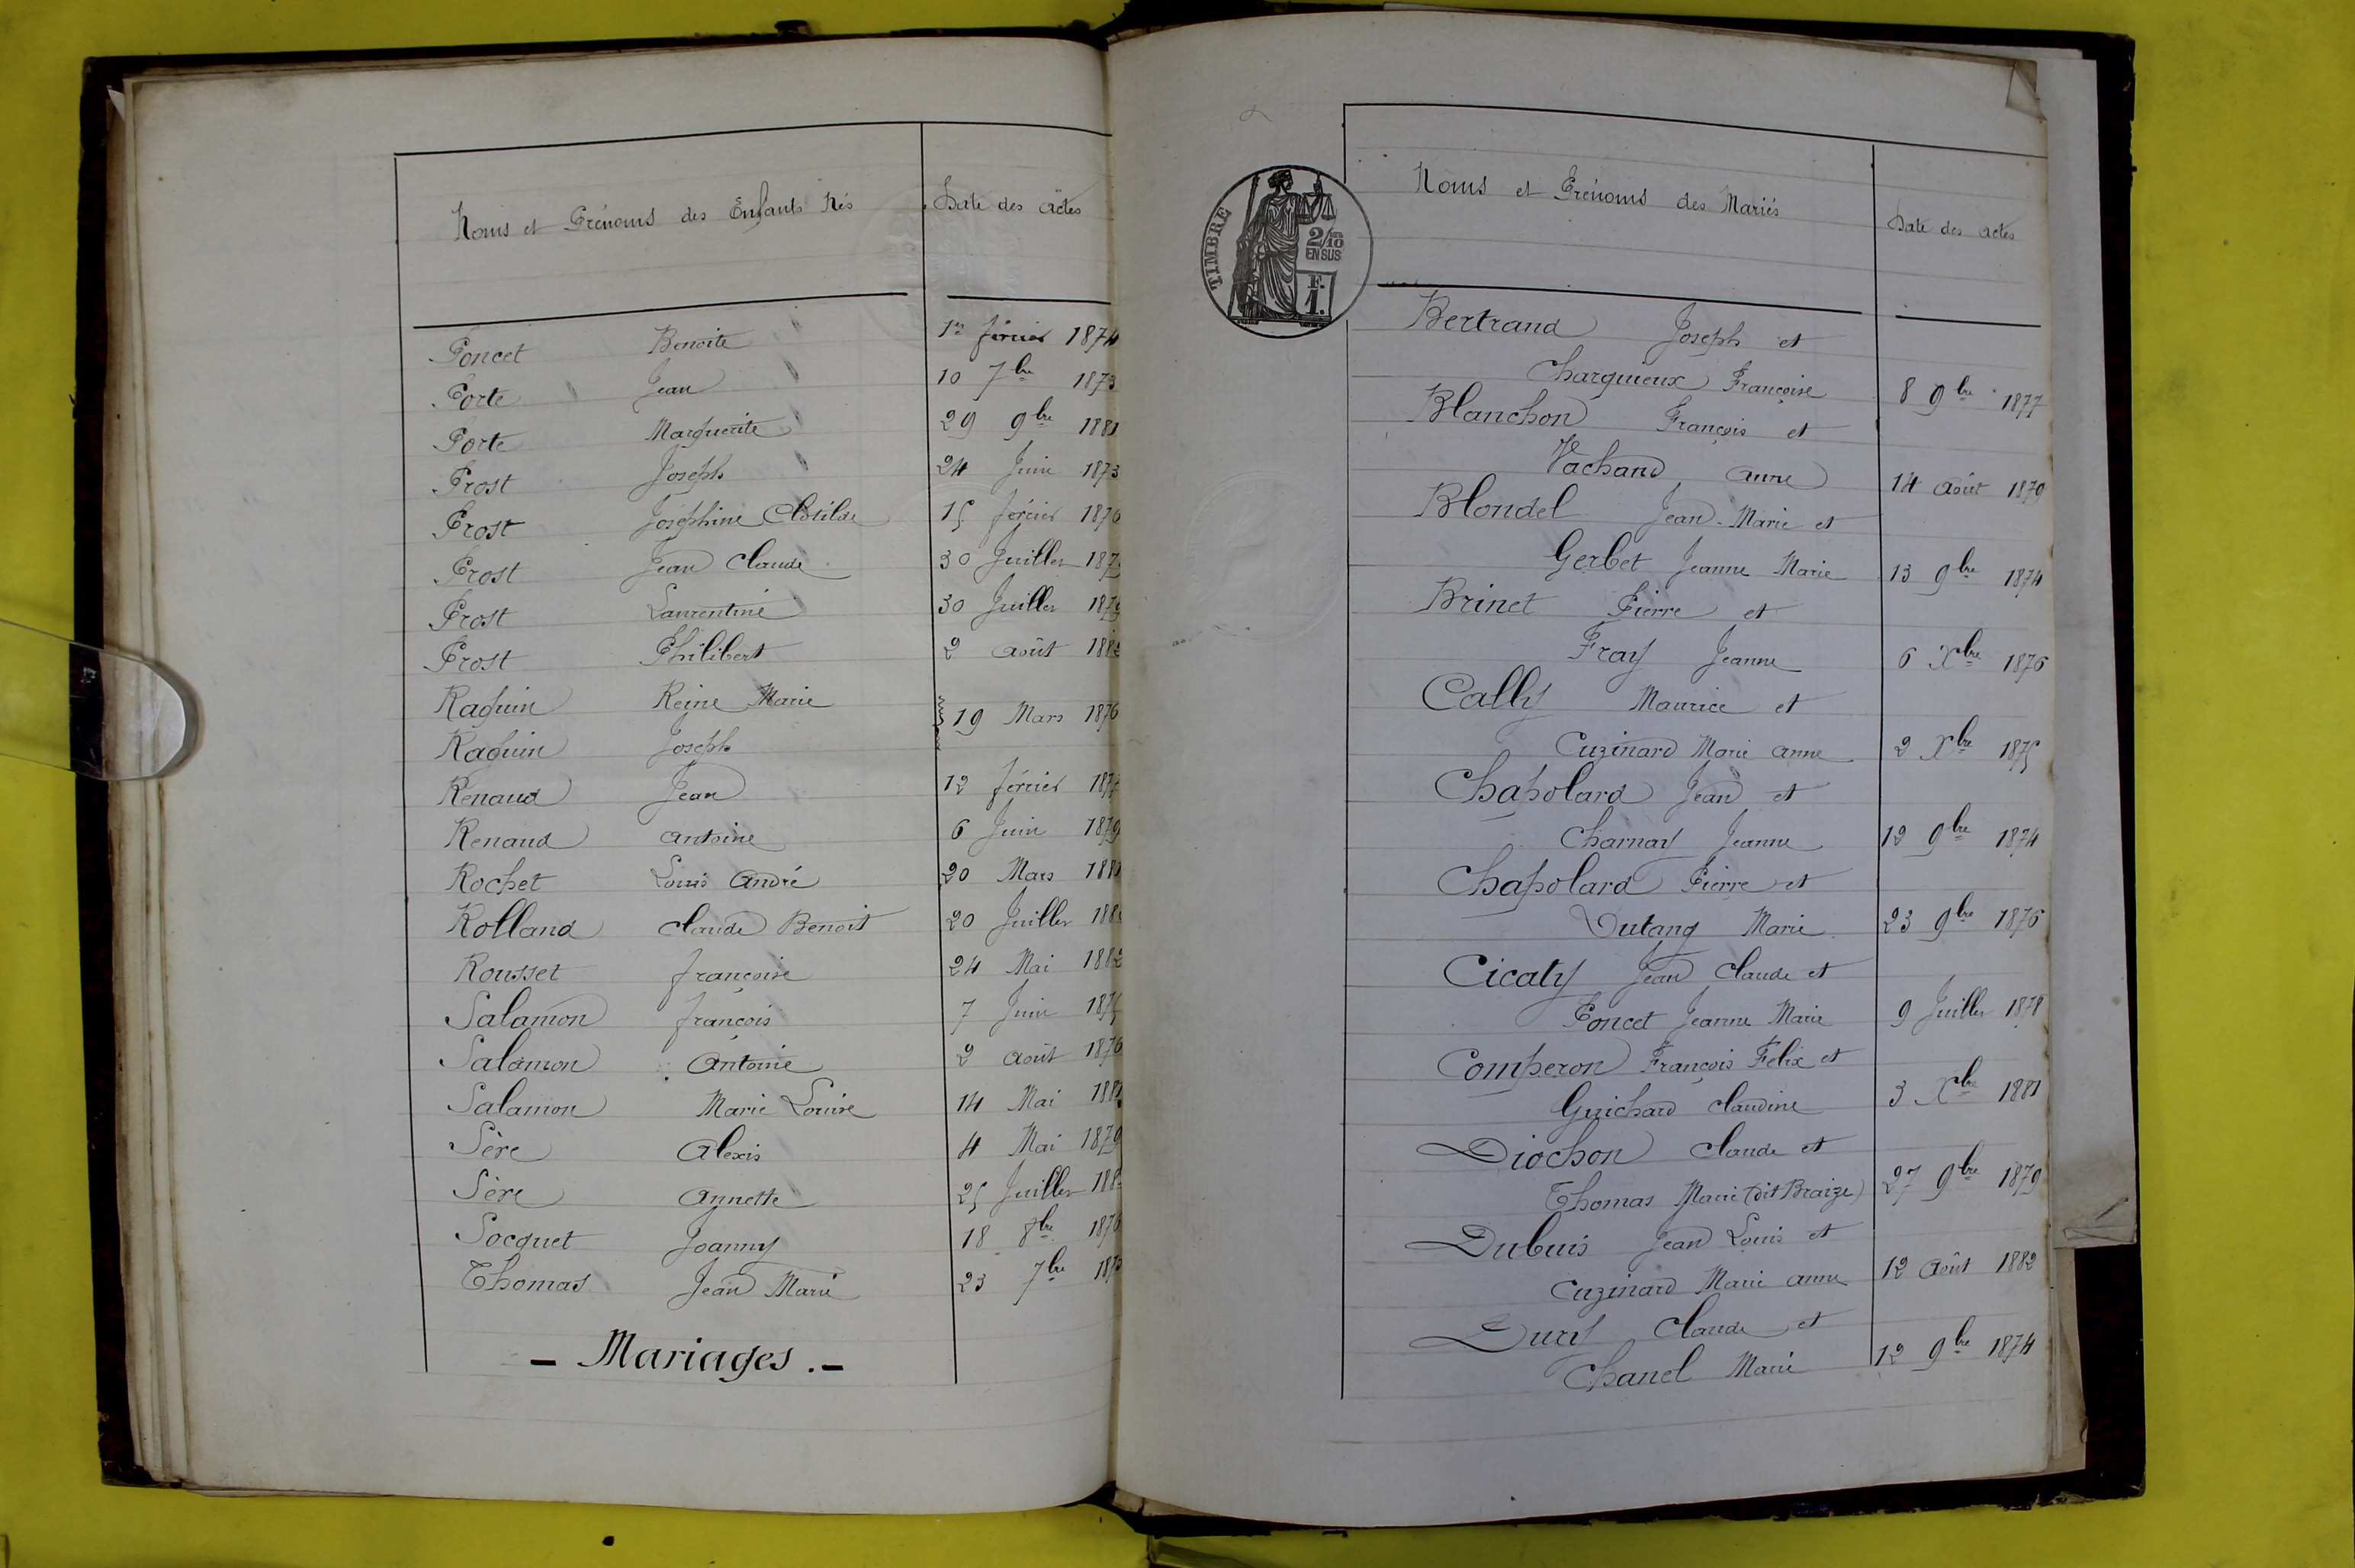 Noms et Prénoms des Enfants Nés Date des actes
Poncet Benoite 1er février 1874
Porte Jean 10 7bre 1873
Porte Marguerite 29 9bre 1881
Prost Joseph 24 Juin 1873
Prost Joséphine Clotilde 15 février 1876
Prost Jean Claude 30 Juillet
Prost Laurentine 30 Juillet 1879
Prost Philibert 2 août
Raguin Reine Marie
19 Mars 1876
Raguin Joseph
Renaud Jean 12 février
Renaud antoine 6 Juin 1879
Rochet Louis André 20 Mars
Rolland Claude Benoit 20 Juillet
Rousset françoise 24 Mai 1882
Salamon françois 7 Juin 1875
Salamon Antoine 2 août 1876
Salamon Marie Louise 14 Mai 1881
Sère Alexis 4 Mai 1879
Sère Annette 25 Juillet
Socquet Joanny 18 8bre 1876
Thomas Jean Marie 23 7bre
- Mariages. -
TIMBRE
2/10
EN SUS
F.
1.
Noms et Prénoms des Mariés Date des actes
Bertrand Joseph et
Chargueux Françoise 8 9bre 1877
Blanchon François et
Vachand anne 14 août 1879
Blondel Jean-Marie et
Gerbet Jeanne Marie 13 9bre 1874
Brinet Pierre et
Fray Jeanne 6 Xbre 1876
Cally Maurice et
Cuzinard Marie anne 2 Xbre 1875
Chapolard Jean et
Charnay Jeanne 12 9bre 1874
Chapolard Pierre et
Dutang Marie 23 9bre 1876
Cicaty Jean Claude et
Poncet Jeanne Marie 9 Juillet 1878
Comperon François Felix et
Guichard claudine 3 Xbre 1881
Diochon Claude et
Thomas Marie (dit Braize) 27 9bre 1879
Dubuis Jean Louis et
Cuzinard Marie anne 12 Août 1882
Dury Claude et
Chanel Marie 12 9bre 1874